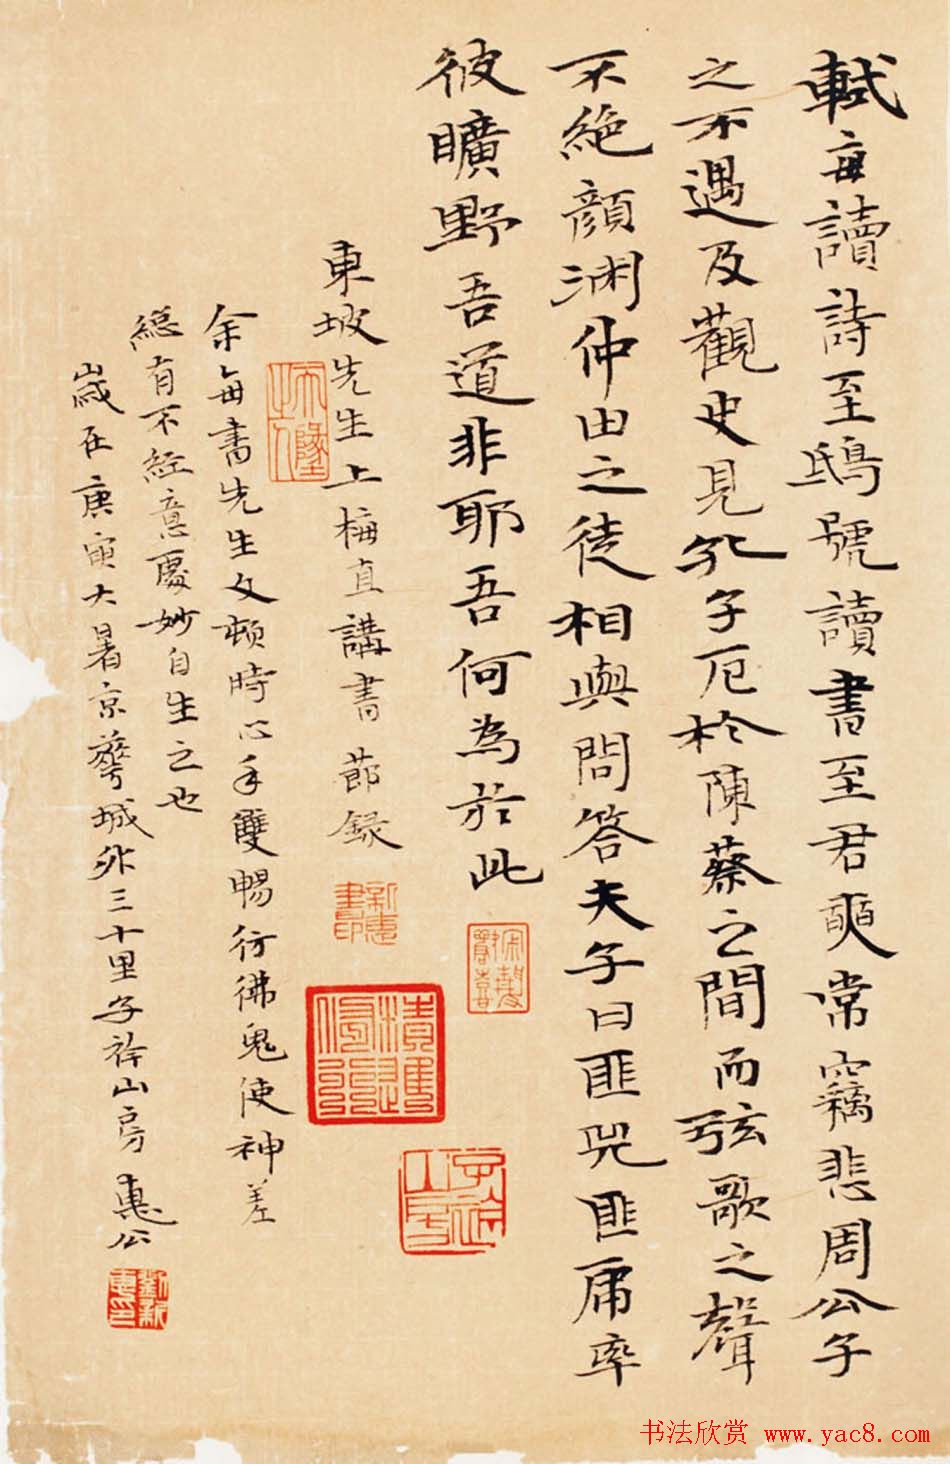 軾每讀詩至鴟號讀書至君奭常竊悲周公子
之不遇及觀史見孔子厄於陳蔡之間而弦歌之聲
不絕顏渊仲由之徒相與問答夫子曰匪兕匪虎率
彼曠野吾道非耶吾何為於此
東坡先生上梅直講書節録
余每書先生文頓時心手雙暢彷彿鬼使神差
緫有不經意處妙自生之也
歲在庚寅大暑京華城外三十里子衿山房惠公
新惠書印
子衿山房
劉新惠印
书法欣赏 www.yac8.com